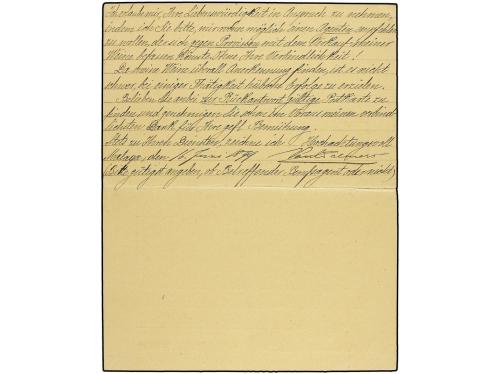 Ich erlaube mir, Ihre Liebenswürdigkeit in Anspruch zu nehmen,
indem ich Sie bitte, mir wo möglich einen Agenten empfehlen
zu wollen, die sich gegen Provision mit dem Verkauf meiner
Weine befassen könnte Ihre Verbindlichkeit!
Da meine Weine überall Anerkennung finden, ist es nicht
schwer, bei einiger Thätigkeit hübsche Erfolge zu erzielen.
Belieben Sie anbei zur Rückantwort gültige Postkarte zu
finden und genehmigen Sie schon im Voraus meinen verbind
lichsten Dank für Ihre gefl Bemühung.
Stets zu Ihren Diensten, zeichne ich Hochachtungsvoll
Malaga, den
(Bitte gütigst angeben, ob Betreffender Compagent oder nicht)